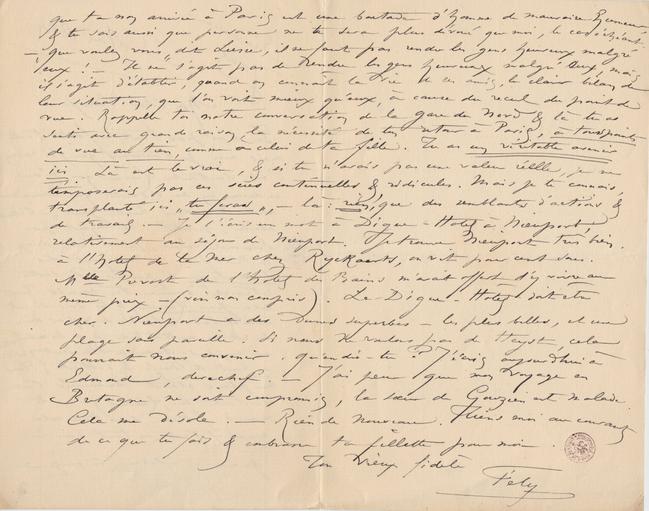 que ta non arrivée à Paris est une boutade d'homme de mauvaise humeur
& tu sais aussi que personne ne te sera plus dévoué que moi, le cas échéant.
— que voulez vous, dit Liesse, il ne faut pas rendre les gens heureux malgré
eux! — Il ne s'agit pas de rendre les gens heureux malgré eux, mais
il s'agit d'établir, quand on connait la vie de ces amis, le clair bilan de
leur situation, que l'on voit mieux qu'eux, à cause du recul du point de
vue. Rappelle toi notre conversation de la gare du Nord & là tu as
senti avec grande raison, la nécessité de ton retour à Paris, à tous points
de vue au tien, comme à celui de ta fille. Tu as un véritable avenir
ici. Là est le vrai, & si tu n'avais pas une valeur réelle, je ne
t'imposerais pas ces scies continuelles & ridicules. Mais je te connais,
transplanté ici, "tu feras", — là: rien, que des semblants d'actions &
de travail. — Je t'écris un mot à Digue-Hotel à Nieuport,
relativement au séjour de Nieuport. Je trouve Nieuport très bien.
à l'Hotel de la Mer chez Ryckaerts, on vit pour cent sous.
Mlle Provost de l'Hotel des Bains m'avait offert d'y vivre au
même prix — (vin non compris). Le Digue-Hotel doit être
cher. Nieuport a des Dunes superbes — les plus belles, et une
plage sans pareille. Si nous ne voulons pas de Heyst, cela
pourrait nous convenir. Qu'en dis-tu? J'écris aujourd'hui à
Edmond, derechef. — J'ai peur que mon voyage en
Bretagne ne soit compromis, la sœur de Gouzien est malade.
Cela me désole. — Rien de nouveau. Tiens moi au courant
de ce que tu fais & embrasse ta fillette pour moi.
Ton vieux fidèle
Fély